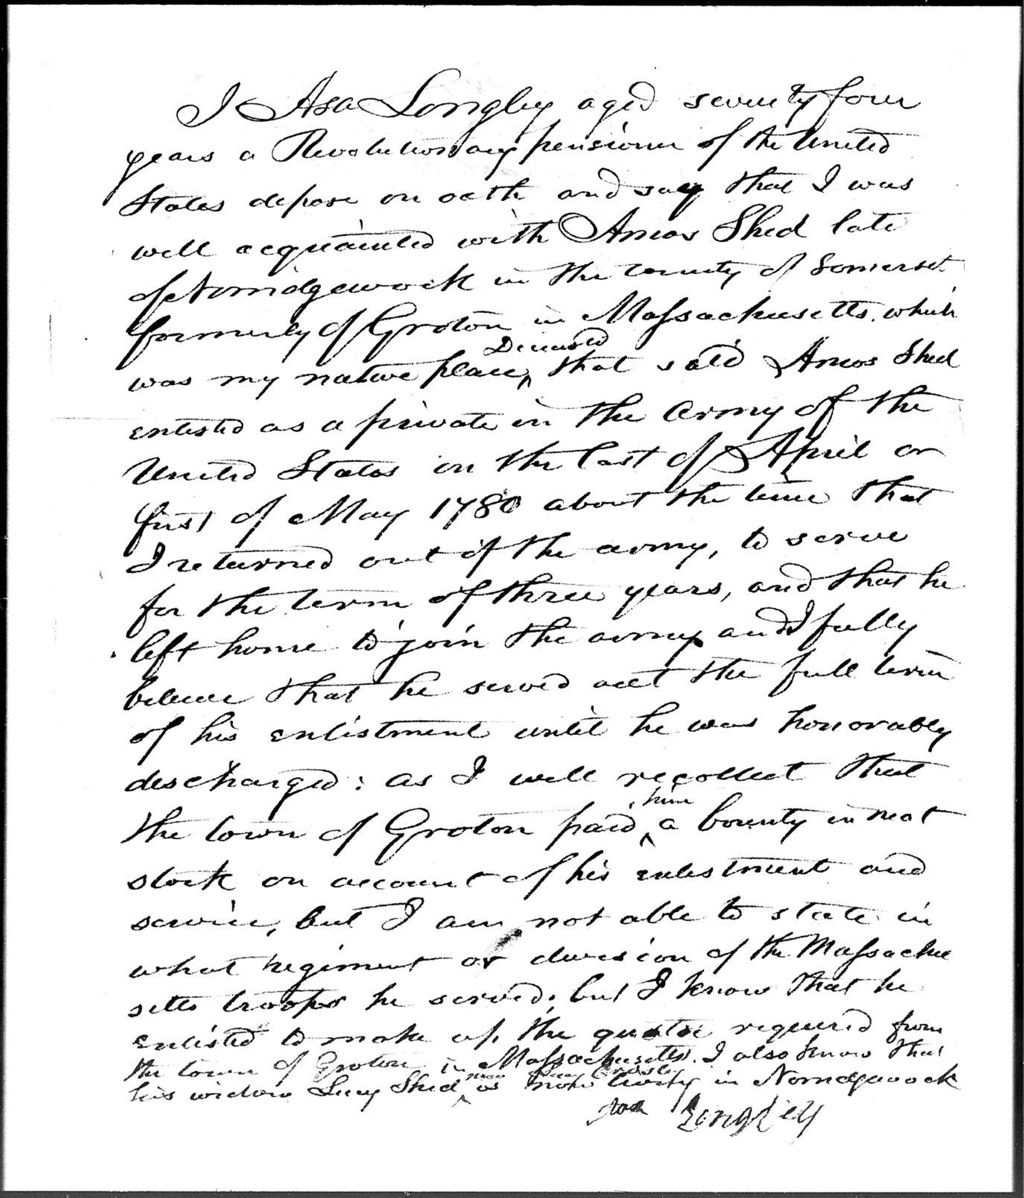 I Asa Longley aged seventy four
years a Revolutionary pensioner of the United
States depose on oath and say that I was
well acquainted with Amos Shed late
of Norridgewock in the county of Somerset
formerly of Groton in Massachusetts. which
Deceased
was my native place, ^ that said Amos Shed
enlisted as a private in the Army of the
United States in the last of April or
first of May 1780 about the time that
I returned out of the army, to serve
for the term of three years, and that he
left home to join the army and I fully
believe that he served out the full term
of his enlistment until he was honorably
discharged: as I well recollect that
him
the town of Groton paid ^ a bounty in neat
stock on account of his enlistment and
service, but I am not able to state in
what regiment or division of the Massachu
setts troops he served. but I know that he
enlisted to make up the quota required from
the town of Groton in Massachusetts. I also know that
now Lucy
his widow Lucy Shed ^ is now living in Norridgewock
Asa Longley